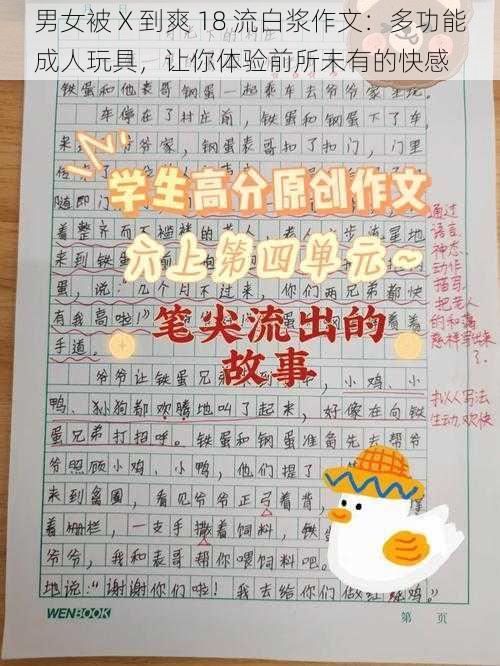 男女被 X 到爽 18 流白浆作文：多功能
成人玩具，让你体验前所未有的快感
铁蛋和他表哥钢蛋一起乘车去爷爷家
车停在了村庄前，铁蛋和钢蛋下了车，
爷家，钢蛋表哥扣了扣门，门里
学生高分原创作文
随即门
着整齐而不
六上第四单元~
来到铁蛋
蛋，说：“几个月不过来，你们两兄弟都快
有我高啦！
笔尖流出的
手道。
故事
通过
语言、
神态、
动作
描写，
把老人
的和蔼
慈祥写出来
了。
爷爷让铁蛋兄弟
，小鸡、小
鸭、小狗都欢腾地叫了起来，好像在向铁
蛋兄弟打招呼。铁蛋和钢蛋准备先去帮爷
爷照顾小鸡、小鸭，他们提了
拟人写法
生动、欢快
来到禽圈，看见爷爷正弓着背，
着栅栏，一支手撒着饲料，铁
爷爷，我和表哥帮你喂饲料吧。
地说：“谢谢你们啦！我去给你们做红烧鸡。”
WENBOOK
第 页